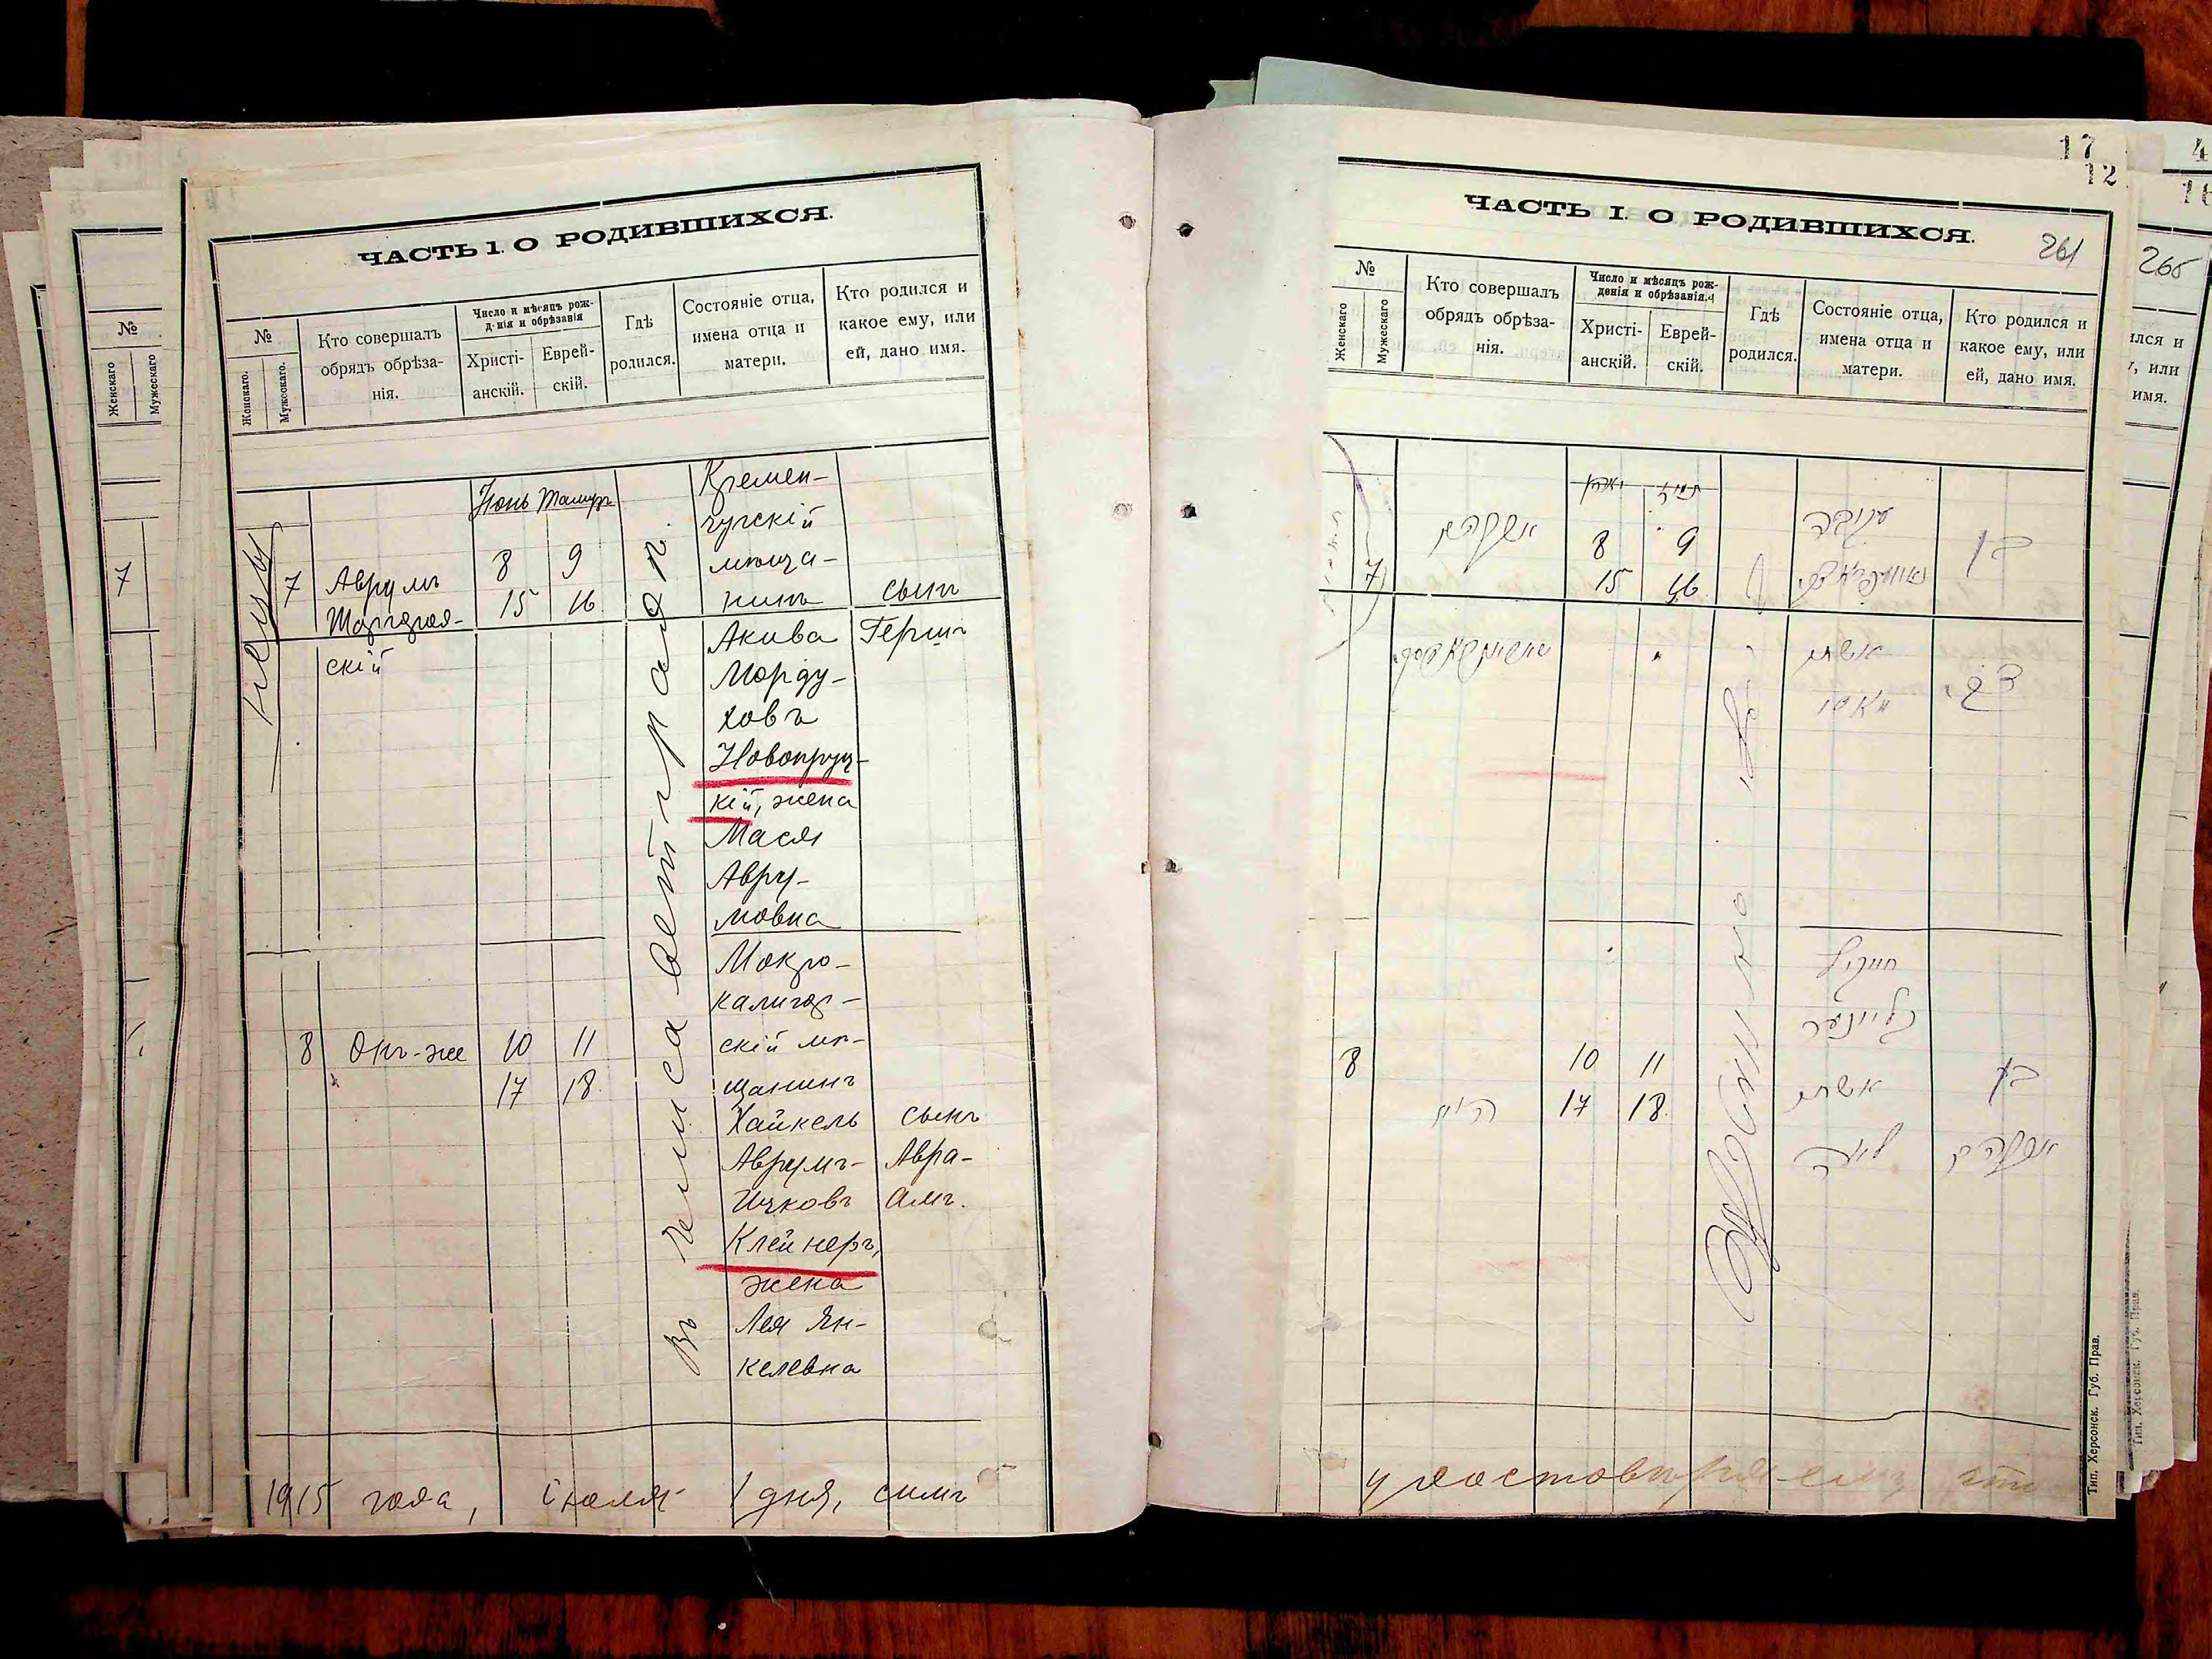 ЧАСТЬ 1. О РОДИВШИХСЯ.
№
Женскаго.
Мужескаго.
Кто совершалъ
обрядъ обрѣза-
нія.
Число и мѣсяцъ рож-
денія и обрѣзанія
Христі-
анскій.
Еврей-
скій.
Гдѣ
родился.
Состояніе отца,
имена отца и
матери.
Кто родился и
какое ему, или
ей, дано имя.
Іюнь Тамузъ
7
Аврумъ
скій
8 9
15 16
Кремен-
чугскій
мѣща-
нинъ
Акива
Морду-
ховъ
Новопруц-
кій, жена
Мася
Авру-
мовна
сынъ
Гершъ
8
Онъ-же
10 11
17 18.
Мокро-
калигор-
скій мѣ-
щанинъ
Хайкель
Аврумъ-
Ицковъ
Клейнеръ,
жена
Лея Ян-
келевна
сынъ
Авра-
амъ.
1915 года, іюля 1 дня, симъ
17
12
ЧАСТЬ I. О РОДИВШИХСЯ.
261
№
Женскаго
Мужескаго
Кто совершалъ
обрядъ обрѣза-
нія.
Число и мѣсяцъ рож-
денія и обрѣзанія.
Христі-
анскій.
Еврей-
скій.
Гдѣ
родился.
Состояніе отца,
имена отца и
матери.
Кто родился и
какое ему, или
ей, дано имя.
7
אברהם
8 9
15 16
עקיבה
בן
אשתו
מאסי
8
10 11
17 18.
הנ״ל
חייקיל
קליינער
אשתו
לאה
בן
אברהם
удостовѣряемъ что
Тип. Херсонск. Губ. Прав.
№
Женскаго
Мужескаго
7
4
16
265
ился и
, или
имя.